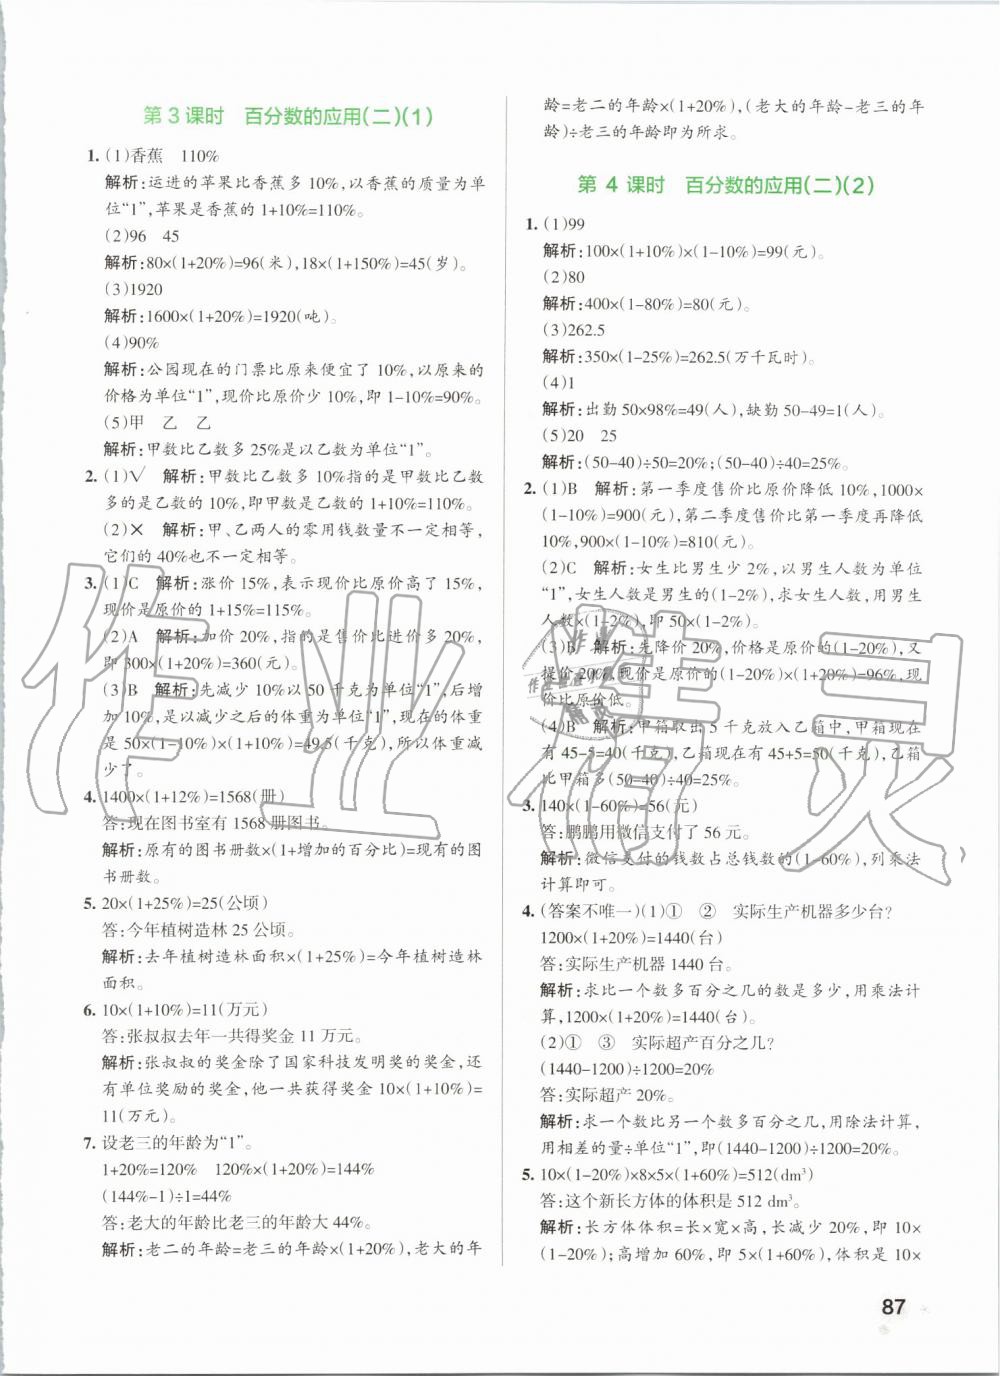 第3课时　百分数的应用(二)(1)
1. (1)香蕉　110%
解析:运进的苹果比香蕉多10%,以香蕉的质量为单
位“1”,苹果是香蕉的1+10%=110%。
(2)96　45
解析:80×(1+20%)=96(米),18×(1+150%)=45(岁)。
(3)1920
解析:1600×(1+20%)=1920(吨)。
(4)90%
解析:公园现在的门票比原来便宜了10%,以原来的
价格为单位“1”,现价比原价少10%,即1-10%=90%。
(5)甲　乙　乙
解析:甲数比乙数多25%是以乙数为单位“1”。
2. (1)√　解析:甲数比乙数多10%指的是甲数比乙数
多的是乙数的10%,即甲数是乙数的1+10%=110%。
(2)×　解析:甲、乙两人的零用钱数量不一定相等,
它们的40%也不一定相等。
3. (1)C　解析:涨价15%,表示现价比原价高了15%,
现价是原价的1+15%=115%。
(2)A　解析:加价20%,指的是售价比进价多20%,
即300×(1+20%)=360(元)。
(3)B　解析:先减少10%以50千克为单位“1”,后增
加10%,是以减少之后的体重为单位“1”,现在的体重
是50×(1-10%)×(1+10%)=49.5(千克),所以体重减
少了。
4. 1400×(1+12%)=1568(册)
答:现在图书室有1568册图书。
解析:原有的图书册数×(1+增加的百分比)=现有的图
书册数。
5. 20×(1+25%)=25(公顷)
答:今年植树造林25公顷。
解析:去年植树造林面积×(1+25%)=今年植树造林
面积。
6. 10×(1+10%)=11(万元)
答:张叔叔去年一共得奖金11万元。
解析:张叔叔的奖金除了国家科技发明奖的奖金,还
有单位奖励的奖金,他一共获得奖金10×(1+10%)=
11(万元)。
7. 设老三的年龄为“1”。
1+20%=120%　120%×(1+20%)=144%
(144%-1)÷1=44%
答:老大的年龄比老三的年龄大44%。
解析:老二的年龄=老三的年龄×(1+20%),老大的年
龄=老二的年龄×(1+20%),(老大的年龄-老三的年
龄)÷老三的年龄即为所求。
第4课时　百分数的应用(二)(2)
1. (1)99
解析:100×(1+10%)×(1-10%)=99(元)。
(2)80
解析:400×(1-80%)=80(元)。
(3)262.5
解析:350×(1-25%)=262.5(万千瓦时)。
(4)1
解析:出勤50×98%=49(人),缺勤50-49=1(人)。
(5)20　25
解析:(50-40)÷50=20%;(50-40)÷40=25%。
2. (1)B　解析:第一季度售价比原价降低10%,1000×
(1-10%)=900(元),第二季度售价比第一季度再降低
10%,900×(1-10%)=810(元)。
(2)C　解析:女生比男生少2%,以男生人数为单位
“1”,女生人数是男生的(1-2%),求女生人数,用男生
人数×(1-2%),即50×(1-2%)。
(3)B　解析:先降价20%,价格是原价的(1-20%),又
提价20%,现价是原价的(1-20%)×(1+20%)=96%,现
价比原价低。
(4)B　解析:甲箱取出5千克放入乙箱中,甲箱现在
有45-5=40(千克),乙箱现在有45+5=50(千克),乙箱
比甲箱多(50-40)÷40=25%。
3. 140×(1-60%)=56(元)
答:鹏鹏用微信支付了56元。
解析:微信支付的钱数占总钱数的(1-60%),列乘法
计算即可。
4. (答案不唯一)(1)①　②　实际生产机器多少台?
1200×(1+20%)=1440(台)
答:实际生产机器1440台。
解析:求比一个数多百分之几的数是多少,用乘法计
算,1200×(1+20%)=1440(台)。
(2)①　③　实际超产百分之几?
(1440-1200)÷1200=20%
答:实际超产20%。
解析:求一个数比另一个数多百分之几,用除法计算,
用相差的量÷单位“1”,即(1440-1200)÷1200=20%。
5. 10×(1-20%)×8×5×(1+60%)=512(dm³)
答:这个新长方体的体积是512 dm³。
解析:长方体体积=长×宽×高,长减少20%,即10×
(1-20%);高增加60%,即5×(1+60%),体积是10×
87
作业精灵